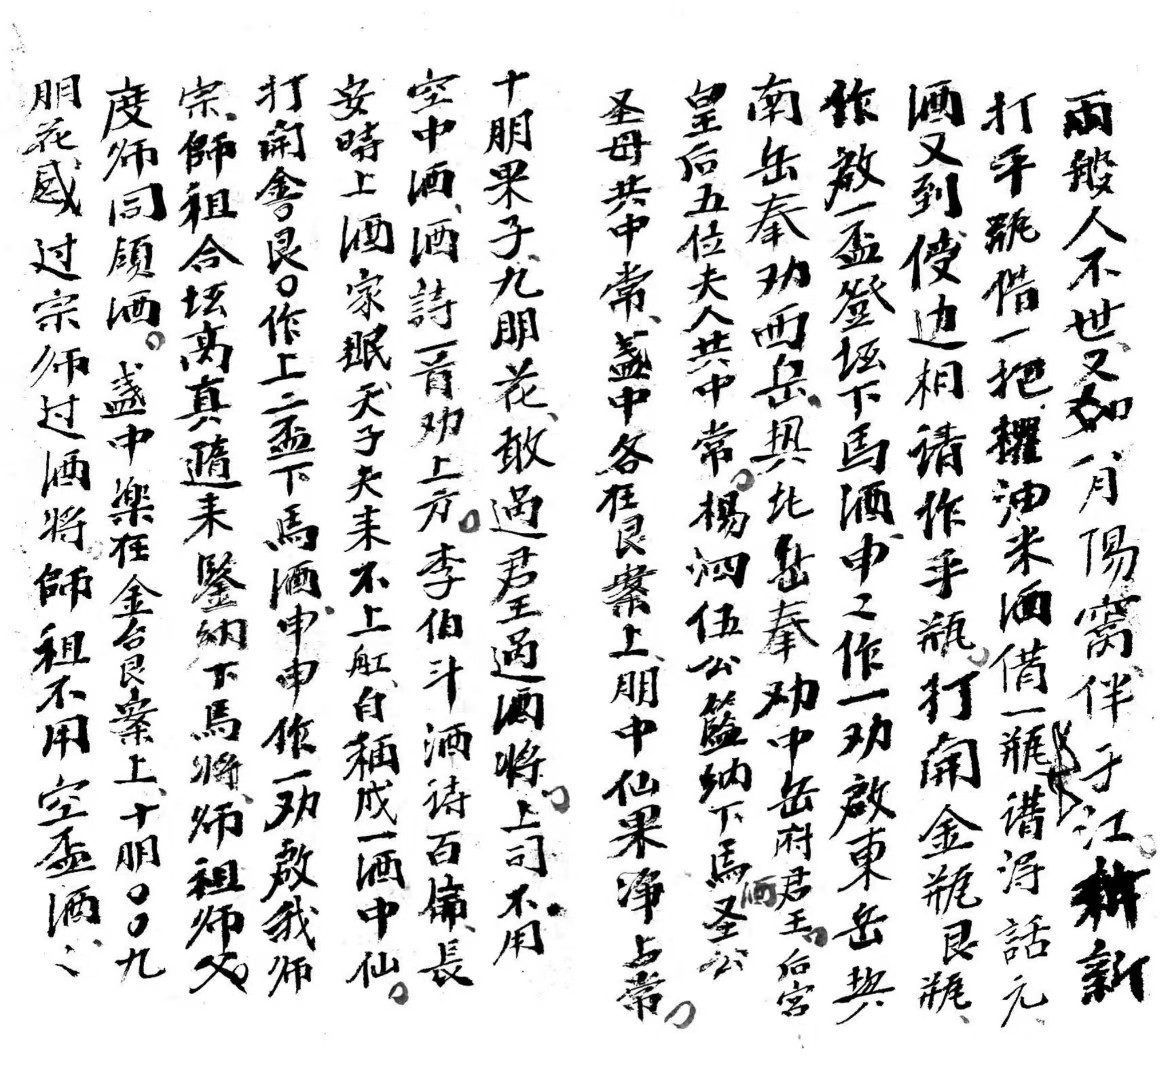 兩般人不世又如八月陽窩伴于江新新
打乎瓶借一把櫂油米酒借一瓶谱浔話元、
酒又到傻边相请作乎瓶。打開金瓶艮瓶、
作啟一盃登坛下馬酒、申々作一劝啟東岳與
南岳奉劝西岳、與北岳奉劝中岳府君王。后宮
皇后五位夫人共中常。楊泗伍公鑒纳下馬酒圣公
圣母共中常、盏中各在艮案上、朋中仙果净上常。
十朋果子、九朋花、敢過君王過酒將。上司不用
空中酒、酒詩一首劝上方。李伯斗酒诗百篇、長
安時上酒家眠天子夫来不上舡、自稱成一酒中仙。
打開金〇艮〇作上二盃下馬酒、申申作一劝啟我师
宗、師祖合坛高真隨来鑒納下馬將、师祖师父
度师同領酒。盏中樂在金台艮案上、十朋〇〇九
朋花感过宗师过酒將。師祖不用空盃酒、、